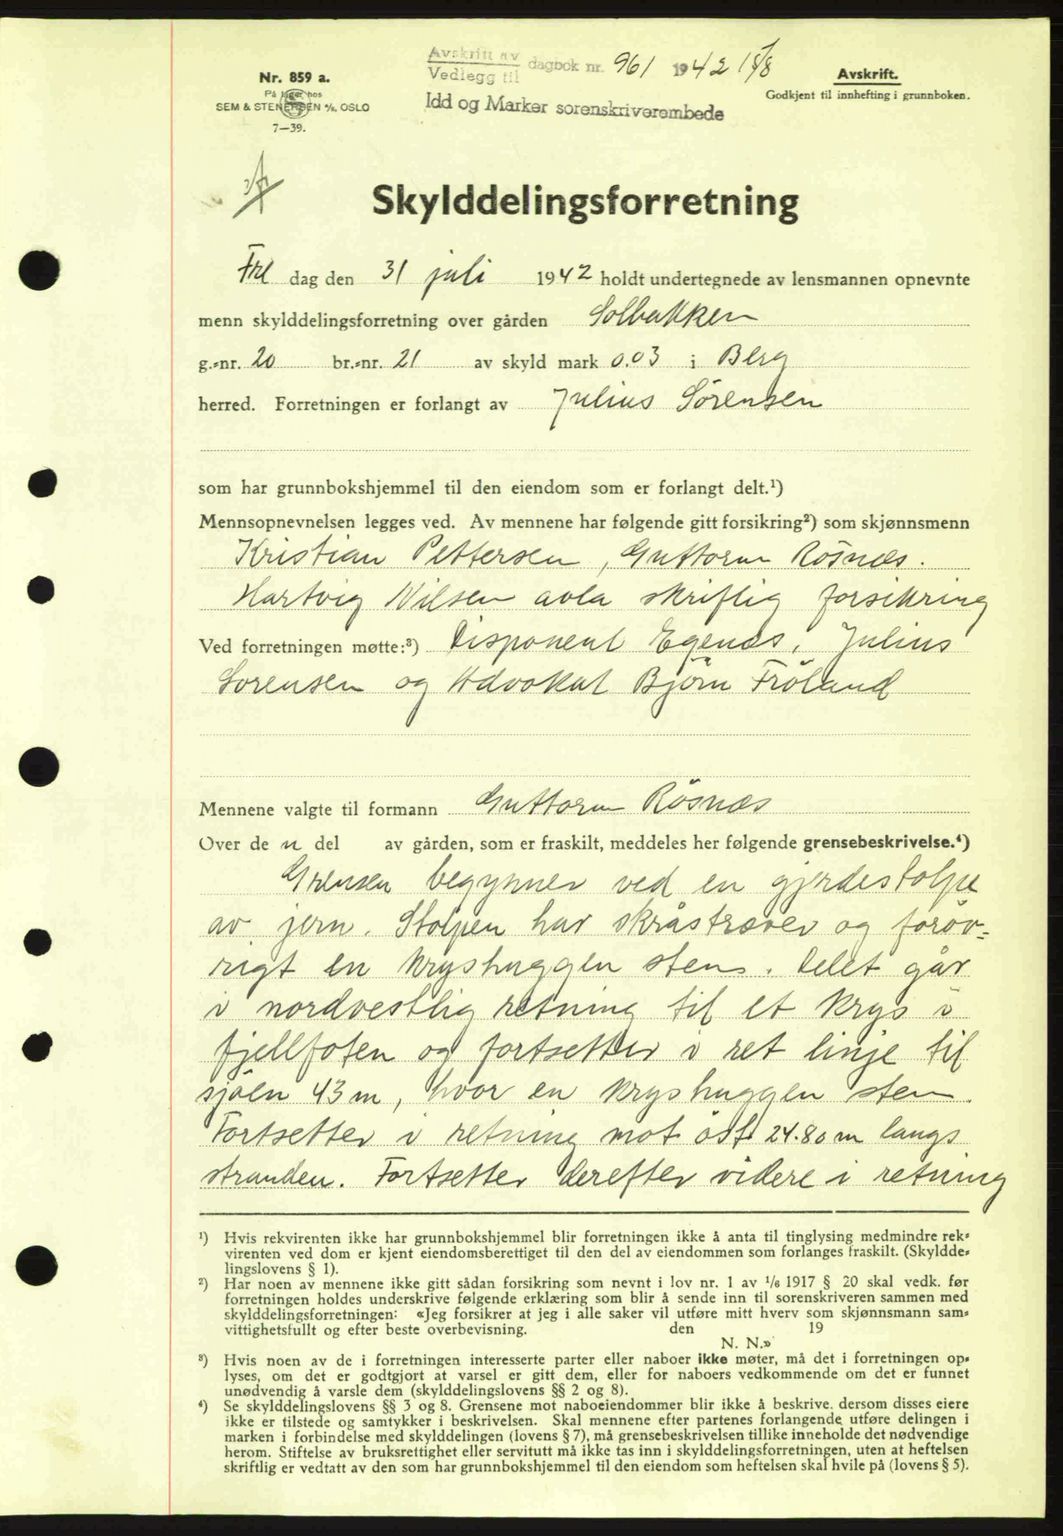 Avskrift av
Vedlegg til dagbok nr. 961 1942 15/8
Idd og Marker sorenskriverembede
Nr. 859 a.
På lager hos
SEM & STENERSEN A/S, OSLO
7—39.
Avskrift.
Godkjent til innhefting i grunnboken.
Skylddelingsforretning
Fre dag den 31 juli 1942 holdt undertegnede av lensmannen opnevnte
menn skylddelingsforretning over gården Solbakken
g.-nr. 20 br.-nr. 21 av skyld mark 0.03 i Berg
herred. Forretningen er forlangt av Julius Sörensen
som har grunnbokshjemmel til den eiendom som er forlangt delt.¹)
Mennsopnevnelsen legges ved. Av mennene har følgende gitt forsikring²) som skjønnsmenn
Kristian Pettersen, Guttorm Rösnæs.
Hartvig Nilsen avla skriftlig forsikring
Ved forretningen møtte:³) Disponent Egenæs, Julius
Sorensen og Advokat Björn Fröland
Mennene valgte til formann Guttorm Rösnæs
Over de n del av gården, som er fraskilt, meddeles her følgende grensebeskrivelse.⁴)
Grensen begynner ved en gjerdestolpe
av jern. Stolpen har skråstræver og foröv-
rigt en kryshuggen sten. Delet går
i nordvestlig retning til et krys i
fjellfoten og fortsetter i ret linje til
sjöen 43 m, hvor en kryshuggen sten.
Fortsetter i retning mot öst 24.80 m langs
stranden. Fortsetter derefter videre i retning
¹) Hvis rekvirenten ikke har grunnbokshjemmel blir forretningen ikke å anta til tinglysing medmindre rek-
virenten ved dom er kjent eiendomsberettiget til den del av eiendommen som forlanges fraskilt. (Skyldde-
lingslovens § 1).
²) Har noen av mennene ikke gitt sådan forsikring som nevnt i lov nr. 1 av 1/6 1917 § 20 skal vedk. før
forretningen holdes underskrive følgende erklæring som blir å sende inn til sorenskriveren sammen med
skylddelingsforretningen: «Jeg forsikrer at jeg i alle saker vil utføre mitt hverv som skjønnsmann sam-
vittighetsfullt og efter beste overbevisning. den 19
N. N.»
³) Hvis noen av de i forretningen interesserte parter eller naboer ikke møter, må det i forretningen op-
lyses, om det er godtgjort at varsel er gitt dem, eller for naboers vedkommende om det er funnet
unødvendig å varsle dem (skylddelingslovens §§ 2 og 8).
⁴) Se skylddelingslovens §§ 3 og 8. Grensene mot naboeiendommer blir ikke å beskrive, dersom disses eiere
ikke er tilstede og samtykker i beskrivelsen. Skal mennene efter partenes forlangende utføre delingen i
marken i forbindelse med skylddelingen (lovens § 7), må grensebeskrivelsen tillike inneholde det nødvendige
herom. Stiftelse av bruksrettighet eller servitutt må ikke tas inn i skylddelingsforretningen, uten at heftelsen
skriftlig er vedtatt av den som har grunnbokshjemmel til den eiendom som heftelsen skal hvile på (lovens § 5).